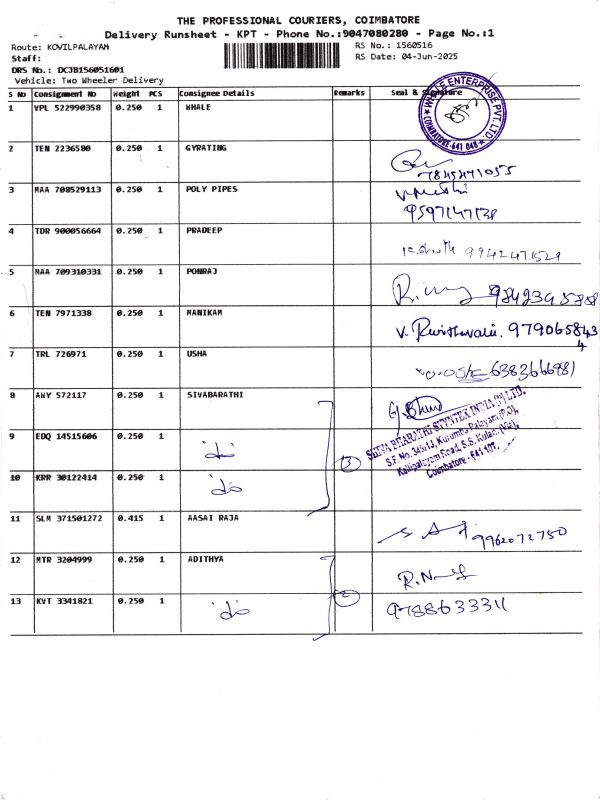 THE PROFESSIONAL COURIERS, COIMBATORE
Delivery Runsheet - KPT - Phone No.:9047080280 - Page No.:1
Route: KOVILPALAYAM
RS No.: 1560516
Staff:
RS Date: 04-Jun-2025
DRS No.: DCJB156051601
Vehicle: Two Wheeler Delivery
S No Consignment No Weight PCS Consignee Details Remarks Seal & Signature
1 VPL 522990358 0.250 1 WHALE
WHALE ENTERPRISE PVT. LTD.
COIMBATORE-641 048
2 TEN 2236580 0.250 1 GYRATING
7845471055
3 MAA 708529113 0.250 1 POLY PIPES
9597147138
4 TDR 900056664 0.250 1 PRADEEP
9942471529
5 MAA 709310331 0.250 1 PONRAJ
9842345858
6 TEN 7971338 0.250 1 MANIKAM
979065843
4
7 TRL 726971 0.250 1 USHA
6383666981
8 ANY 572117 0.250 1 SIVABARATHI
SHIVA BHARATHI SYNTEX INDIA (P) LTD.
S.F. No. 349/1J, Kurumba Palayam (P.O),
Kallipalayam Road, S.S. Kulam (Via),
Coimbatore - 641 107.
9 EDQ 14515606 0.250 1
3
10 KRR 30122414 0.250 1
11 SLM 371501272 0.415 1 AASAI RAJA
9962072750
12 MTR 3204999 0.250 1 ADITHYA
2
13 KVT 3341821 0.250 1
9788633311